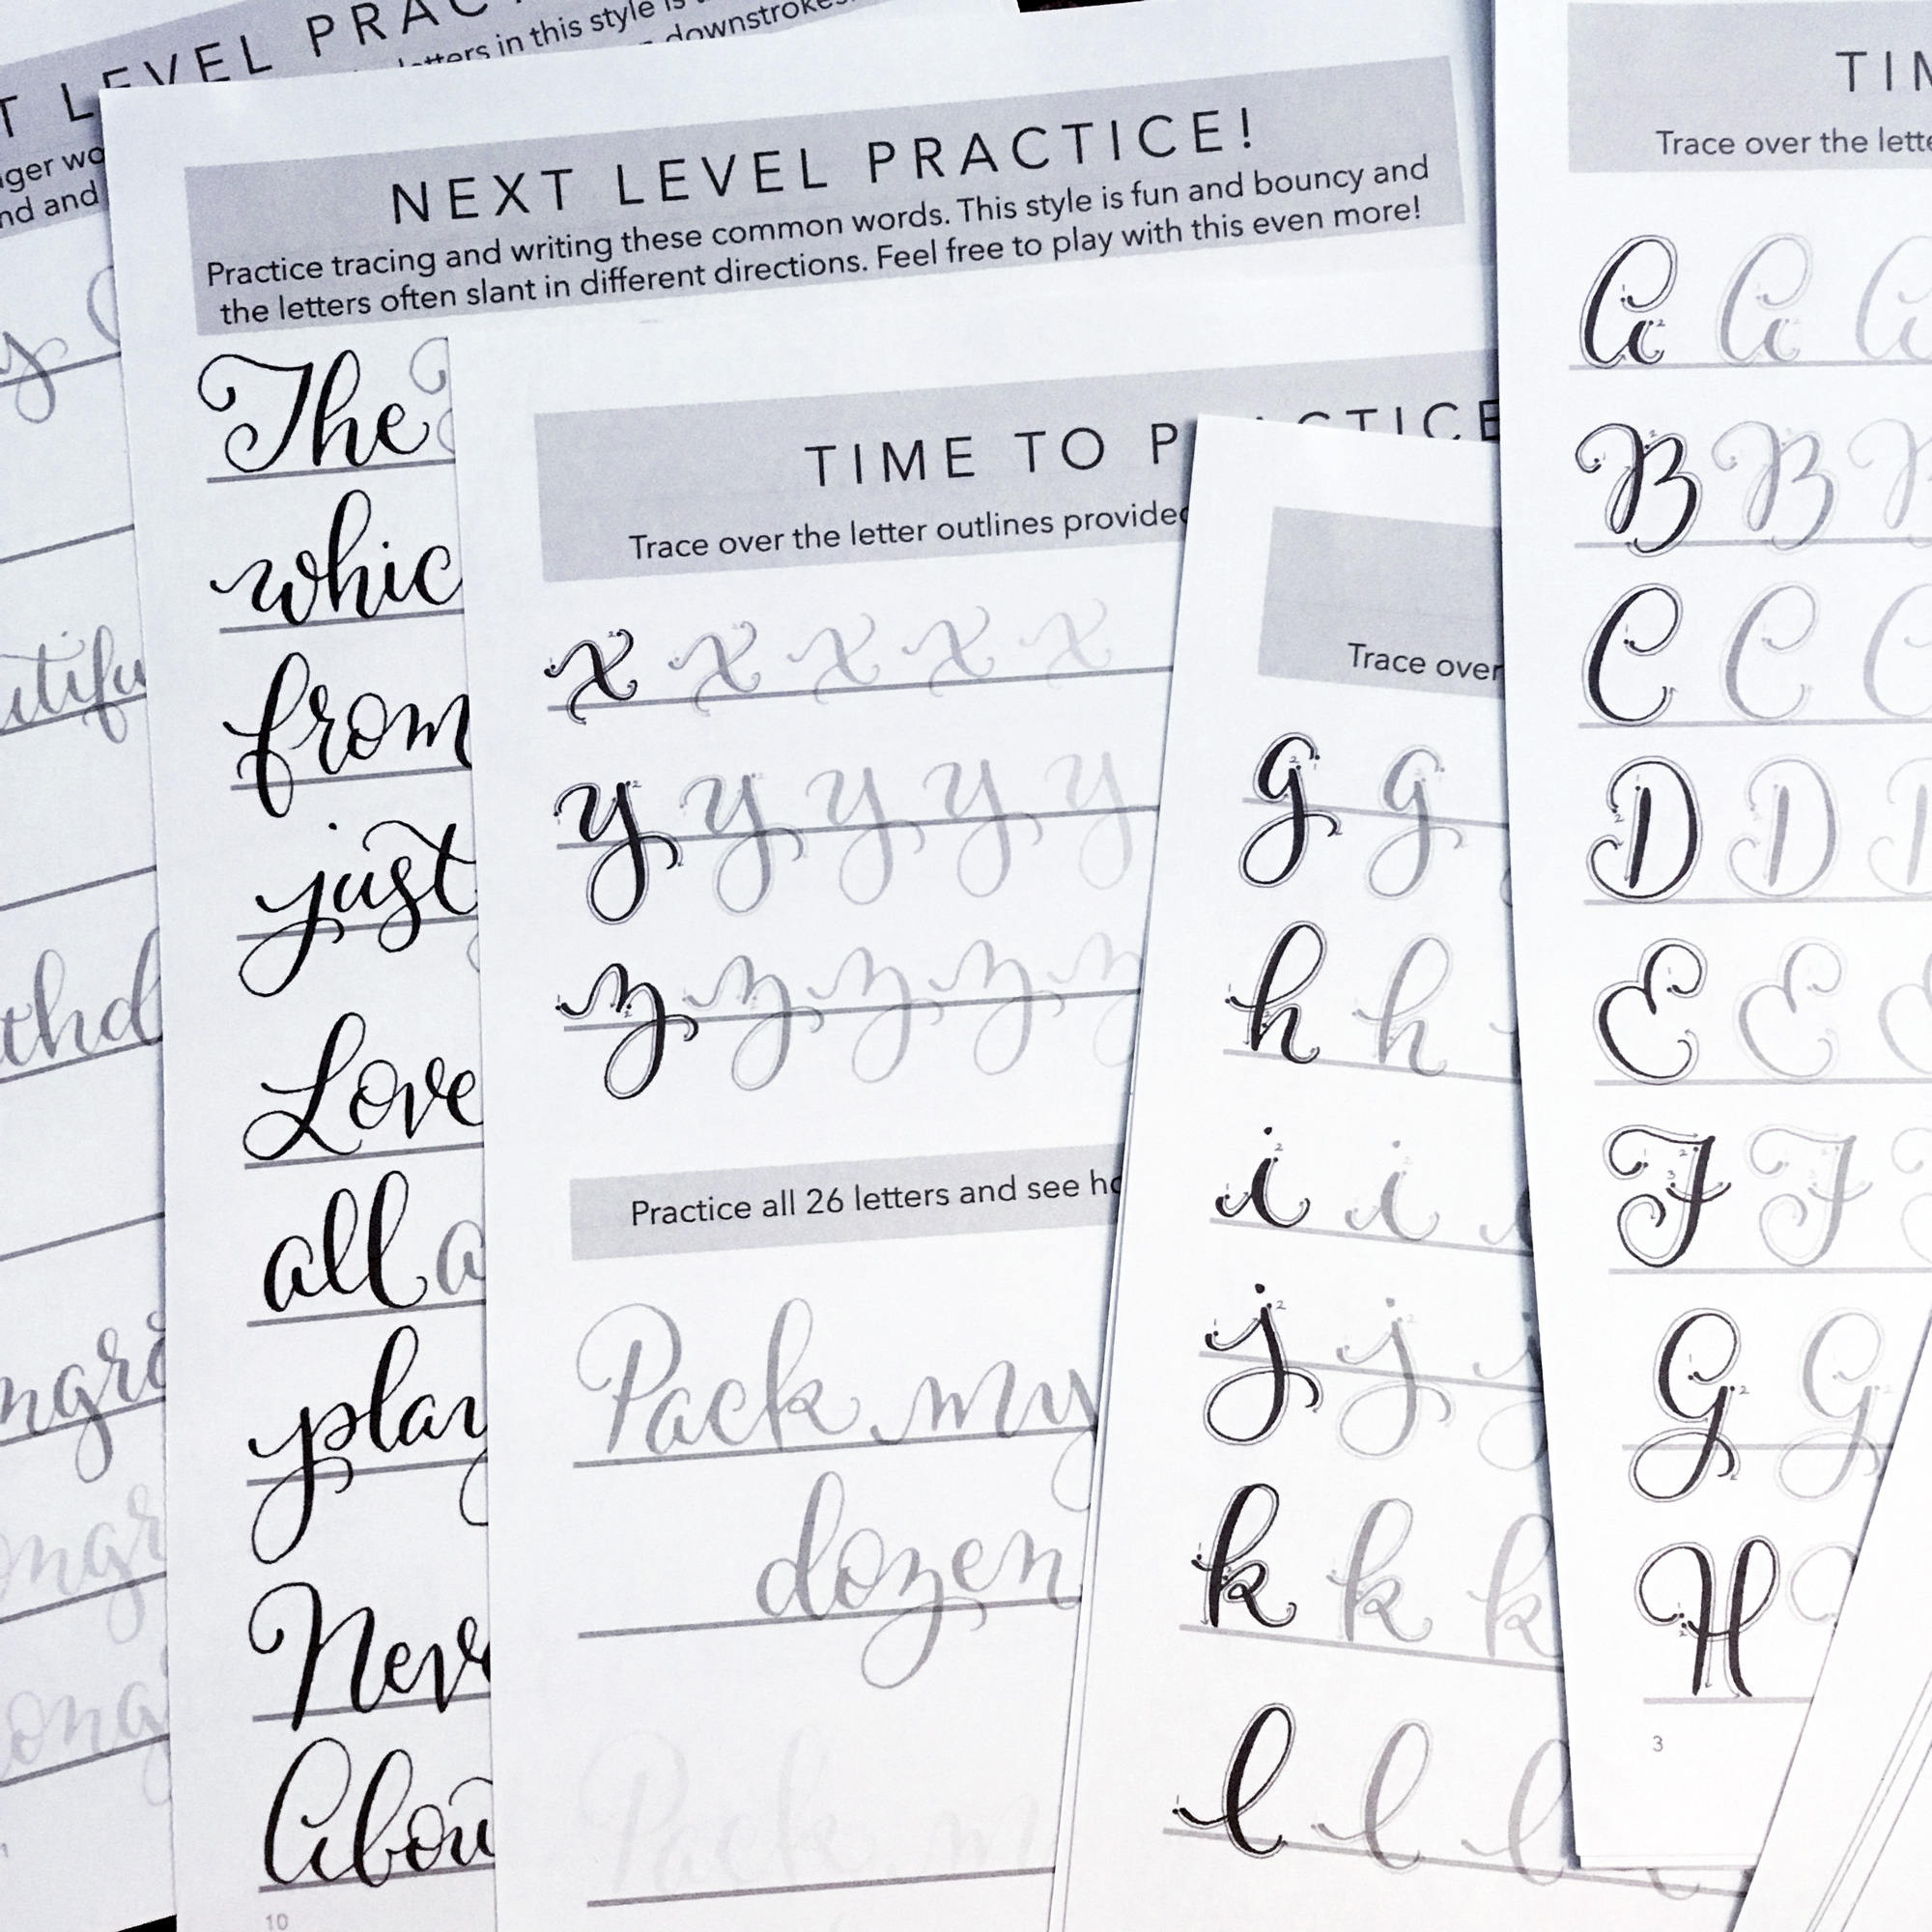 LEVEL
letters in this style is
downstrokes.
and
utifu
thd
ngra
ongr
ong
NEXT LEVEL PRACTICE!
Practice tracing and writing these common words. This style is fun and bouncy and
the letters often slant in different directions. Feel free to play with this even more!
The
whic
from
just
Love
all a
play
Neve
Abou
10
TIME TO PRACTICE
Trace over the letter outlines provided
x x x x x
y y y y y
z z z z z
Practice all 26 letters and see ho
Pack my
dozen
Pack m
Trace over
g g
h h
i i
j j j
k k k
l l l
TIM
Trace over the lette
A A A
B B B
C C C
D D D
E E E
F F F
G G
H
3